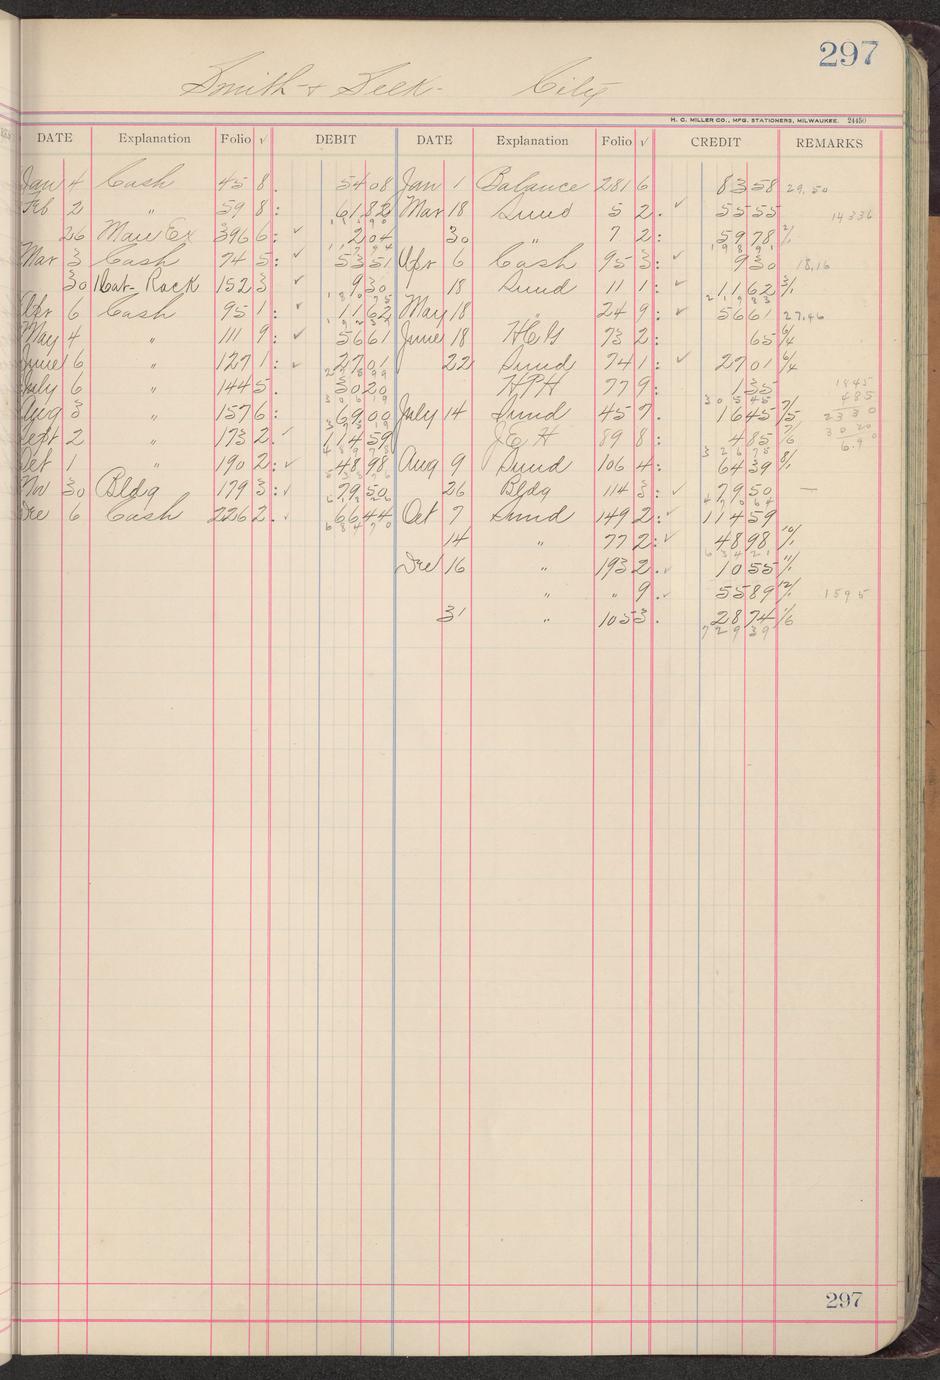 297
Smith & Seek - City
H. C. MILLER CO., MFG. STATIONERS, MILWAUKEE. 24450
DATE Explanation Folio √ DEBIT DATE Explanation Folio √ CREDIT REMARKS
Jan 4 Cash 45 8. 54 08 Jan 1 Balance 281 6 83 58 29.50
Feb 2 " 59 8: 61 82 Mar 18 Sund 5 2. ✓ 55 55 14336
26 Man Ex 396 6: ✓ 2 04 30 " 7 2: 59 78
Mar 3 Cash 74 5: ✓ 53 51 Apr 6 Cash 95 3: ✓ 9 30 18.16
30 Rock 152 3 ✓ 9 30 18 Sund 11 1: ✓ 11 62 3/1
Apr 6 Cash 95 1: ✓ 11 62 May 18 " 24 9: ✓ 56 61 27.46
May 4 " 111 9: ✓ 56 61 June 18 H.C.G 73 2: 65 6/4
June 6 " 127 1: ✓ 27 01 22 Sund 74 1: ✓ 27 01 6/4
July 6 " 144 5. 30 20 H.P.H 77 9: 1 35 1845
Aug 3 " 157 6: 69 00 July 14 Sund 45 7. 16 45 7/5 485
Sept 2 " 173 2. ✓ 114 59 J.E.H 89 8: 4 85 7/6 2330
Oct 1 " 190 2: ✓ 48 98 Aug 9 Sund 106 4: 64 39 8/1 30 20
Nov 30 Bldg 179 3: ✓ 79 50 26 Bldg 114 3: ✓ 79 50 — 6.90
Dec 6 Cash 226 2. ✓ 66 44 Oct 7 Sund 149 2: ✓ 114 59
14 " 77 2: ✓ 48 98 10/1
Dec 16 " 193 2. ✓ 10 55 11/1
" " 9. ✓ 55 89 12/1 1595
31 " 105 3. 28 74 1/6
729 39
297